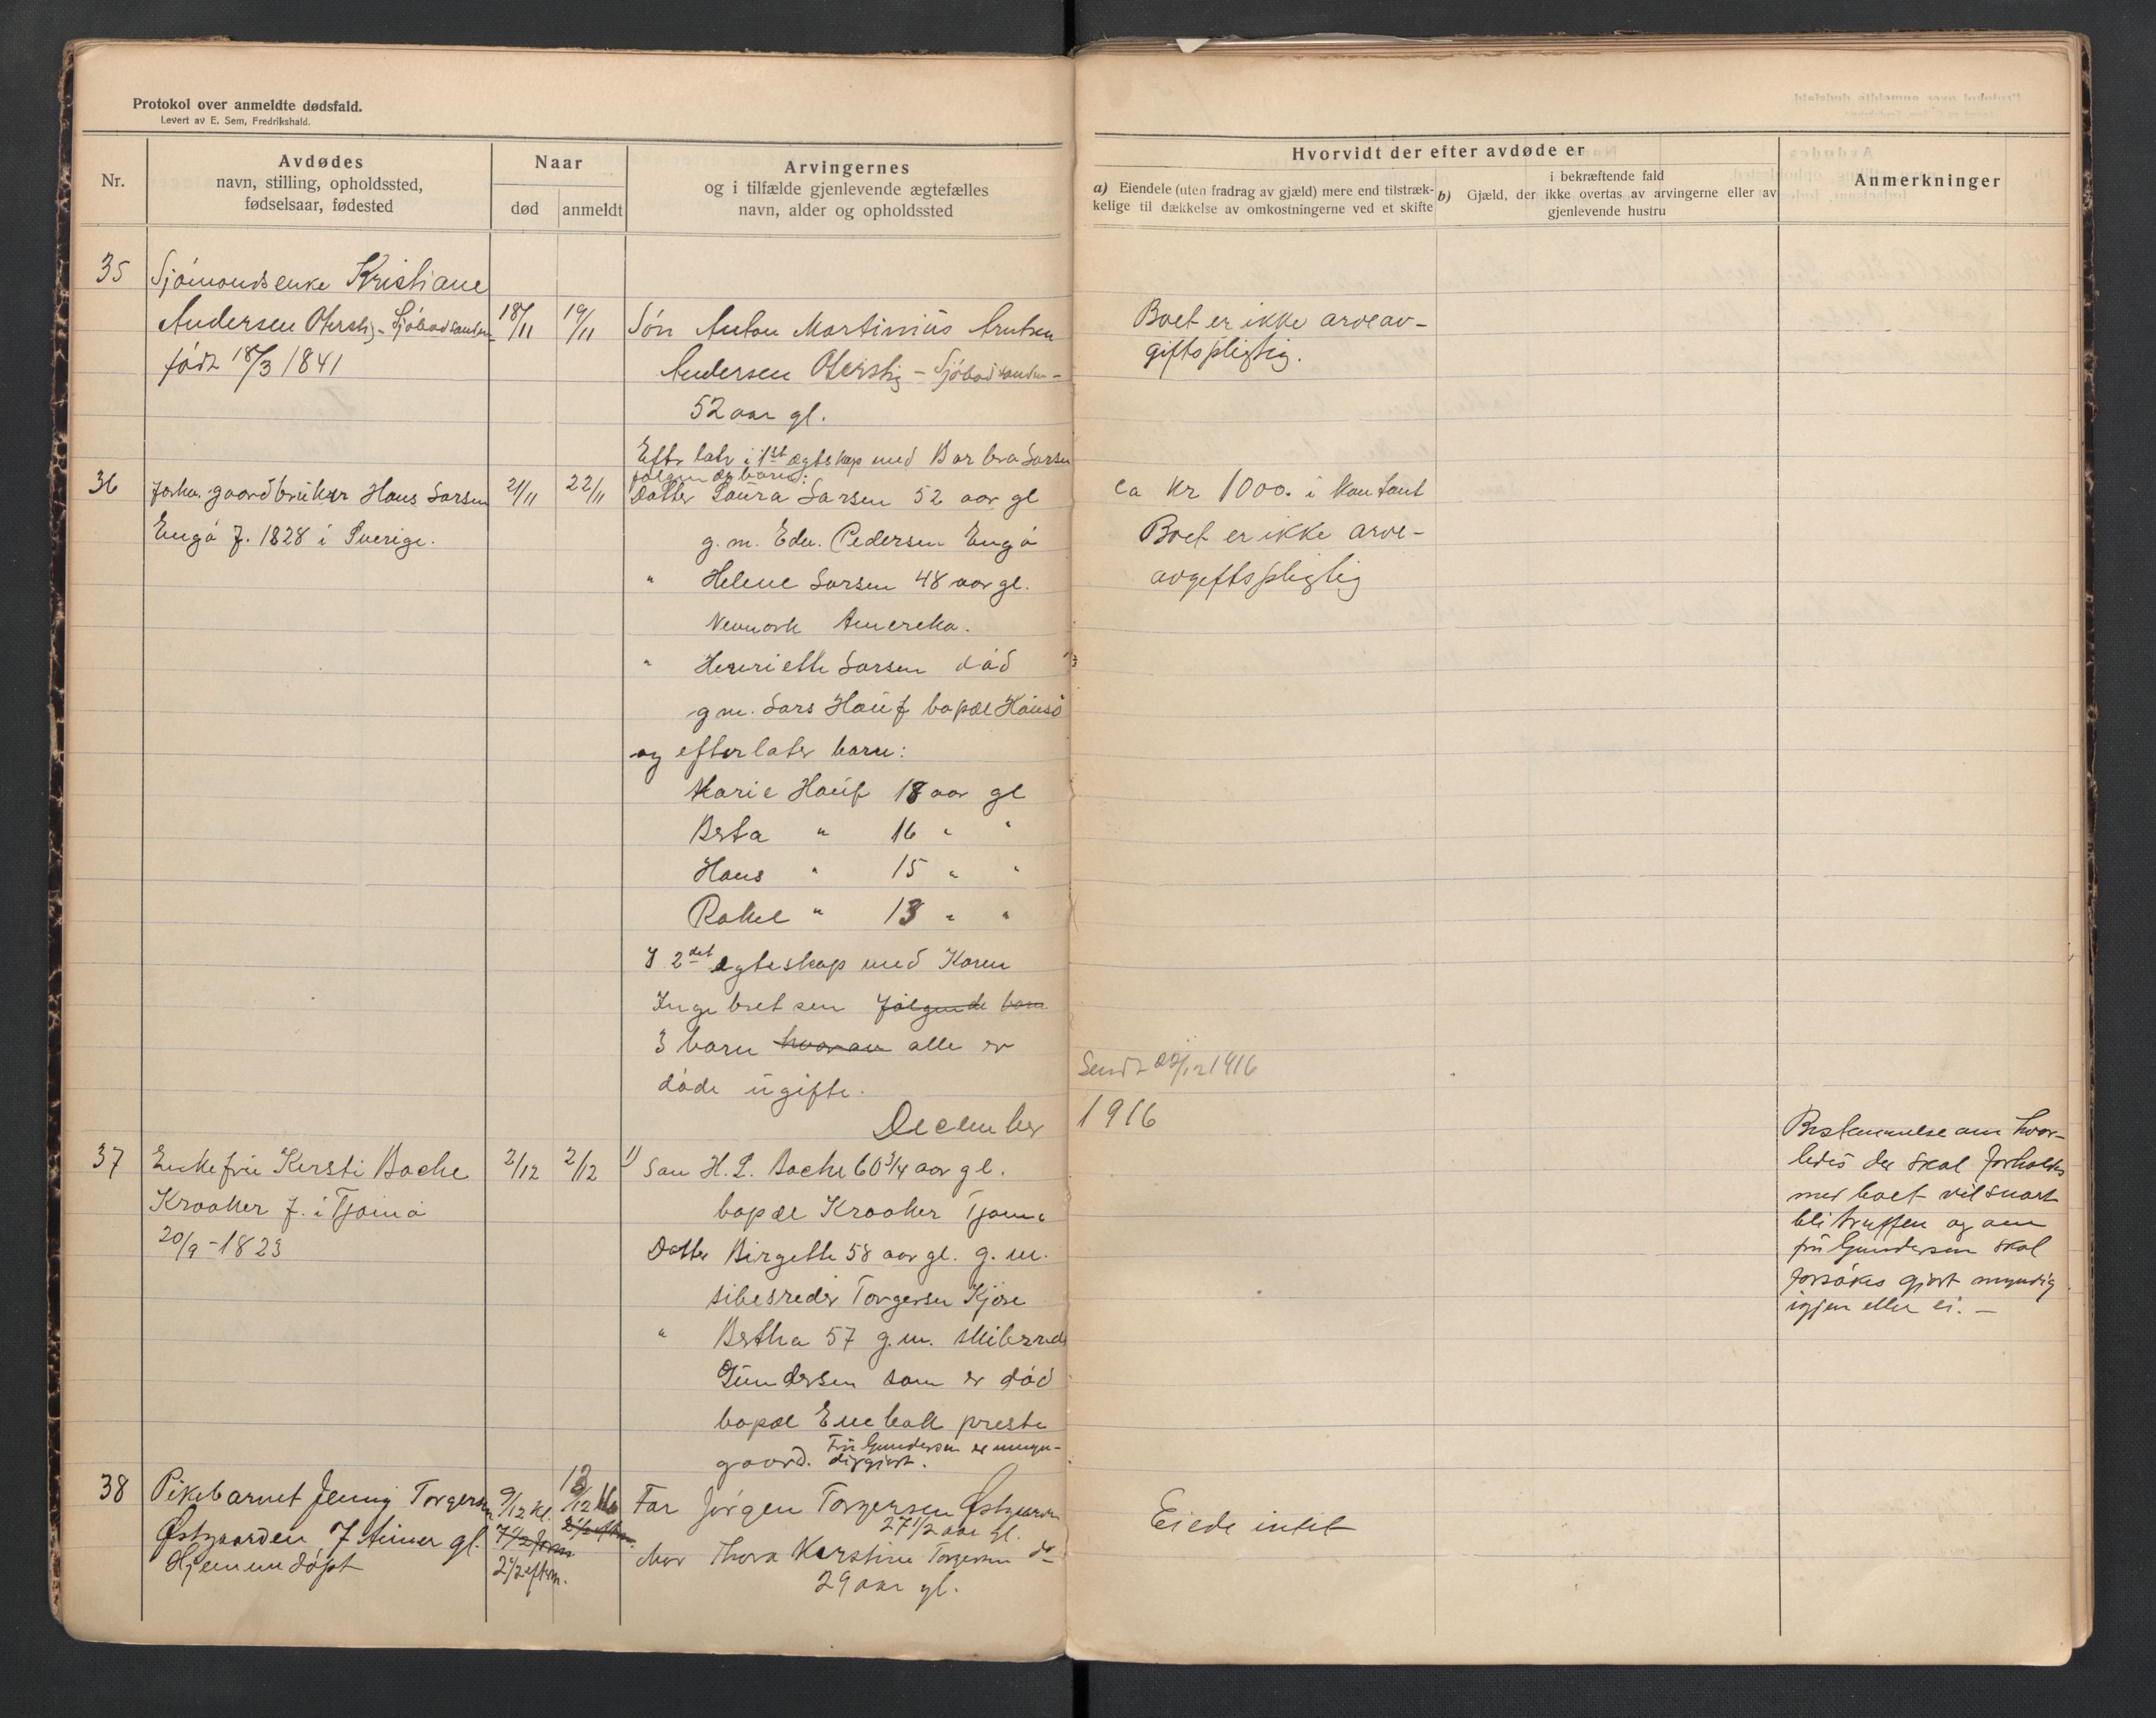 Protokol over anmeldte dødsfald.
Levert av E. Sem, Fredrikshald.
Nr.
Avdødes
navn, stilling, opholdssted,
fødselsaar, fødested
Naar
død
anmeldt
Arvingernes
og i tilfælde gjenlevende ægtefælles
navn, alder og opholdssted
Hvorvidt der efter avdøde er
a) Eiendele (uten fradrag av gjæld) mere end tilstræk-
kelige til dækkelse av omkostningerne ved et skifte
i bekræftende fald
b) Gjæld, der ikke overtas av arvingerne eller av
gjenlevende hustru
Anmerkninger
35
Sjømandsenke Kristiane
Andersen
født 18/3 1841
18/11
19/11
Søn Anton Martinius
Andersen
52 aar gl.
Boet er ikke arveav-
giftspligtig.
36
forhv. gaardbruker Hans Larsen
Engø f. 1828 i Sverige.
21/11
22/11
Efterlatr i 1st ægteskap med Barbra Larsen
følgende barn:
Datter Laura Larsen 52 aar gl
g. m. Edv. Pedersen Engø
" Helene Larsen 48 aar gl.
Newyork Amereka.
" Henriette Larsen død
g m. Lars Hauf bopæl
og efterlater barn:
Marie Hauf 18 aar gl
Berta " 16 " "
Hans " 15 " "
Rakel " 13 " "
I 2det ægteskap med Karen
Ingebretsen følgende barn
3 barn hvorav alle er
døde ugifte.
ca kr 1000. i kontant
Boet er ikke arve-
avgeftspligtig
Sendt 22/12 1916
December
1916
37
Enkefru Kersti Bache
Kraaker f. i Tjømø
20/9 - 1823
2/12
2/12
1) Søn H. L. Bache 60 3/4 aar gl.
bopæl Kraaker Tjømø
Datter Birgette 58 aar gl. g. m.
sibesreder Torgersen Kjøse
" Bertha 57 g. m. skibsred
Gundersen som er død
bopæl Enebakk preste
gaard. Fru Gundersen er umyn-
digjort.
Bestemmelse om hvor-
ledes der skal forholdes
med boet vil snart
bli truffen og om
fru Gundersen skal
forsøkes gjort myndig
igjen eller ei. –
38
Pikebarnet Jenny Torgersen
Østgaarden 7 timer gl.
Hjemmedøpt
9/12 kl.
7 1/2 form
2 1/2 efterm.
12/12 16
2 1/2 efterm.
Far Jørgen Torgersen Østgaarden
27 1/2 aar gl.
Mor Thora Kerstine Torgersen do
29 aar gl.
Eiede intet